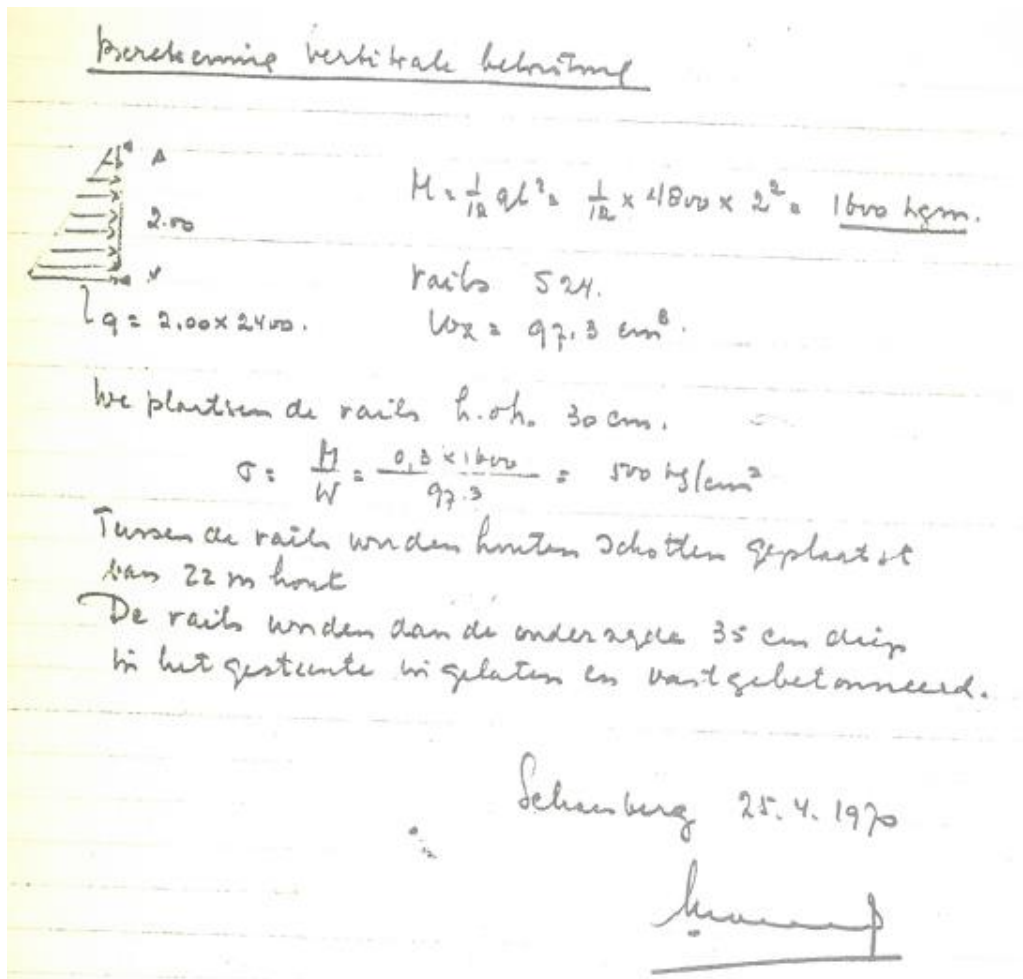 Berekening vertikale bekisting
A
M = 1/12 ql² = 1/12 x 4800 x 2² = 1600 kgm.
2.00
rails S24.
q = 2.00 x 2400.
Wx = 97.3 cm³.
We plaatsen de rails h.oh. 30 cm.
σ = M/W = 0,3 x 1600 / 97.3 = 500 kg/cm²
Tussen de rails worden houten schotten geplaatst
van 22 m hout
De rails worden dan de onderzijde 35 cm diep
in het gesteente ingelaten en vastgebetonneerd.
Schaesberg 25.4.1970